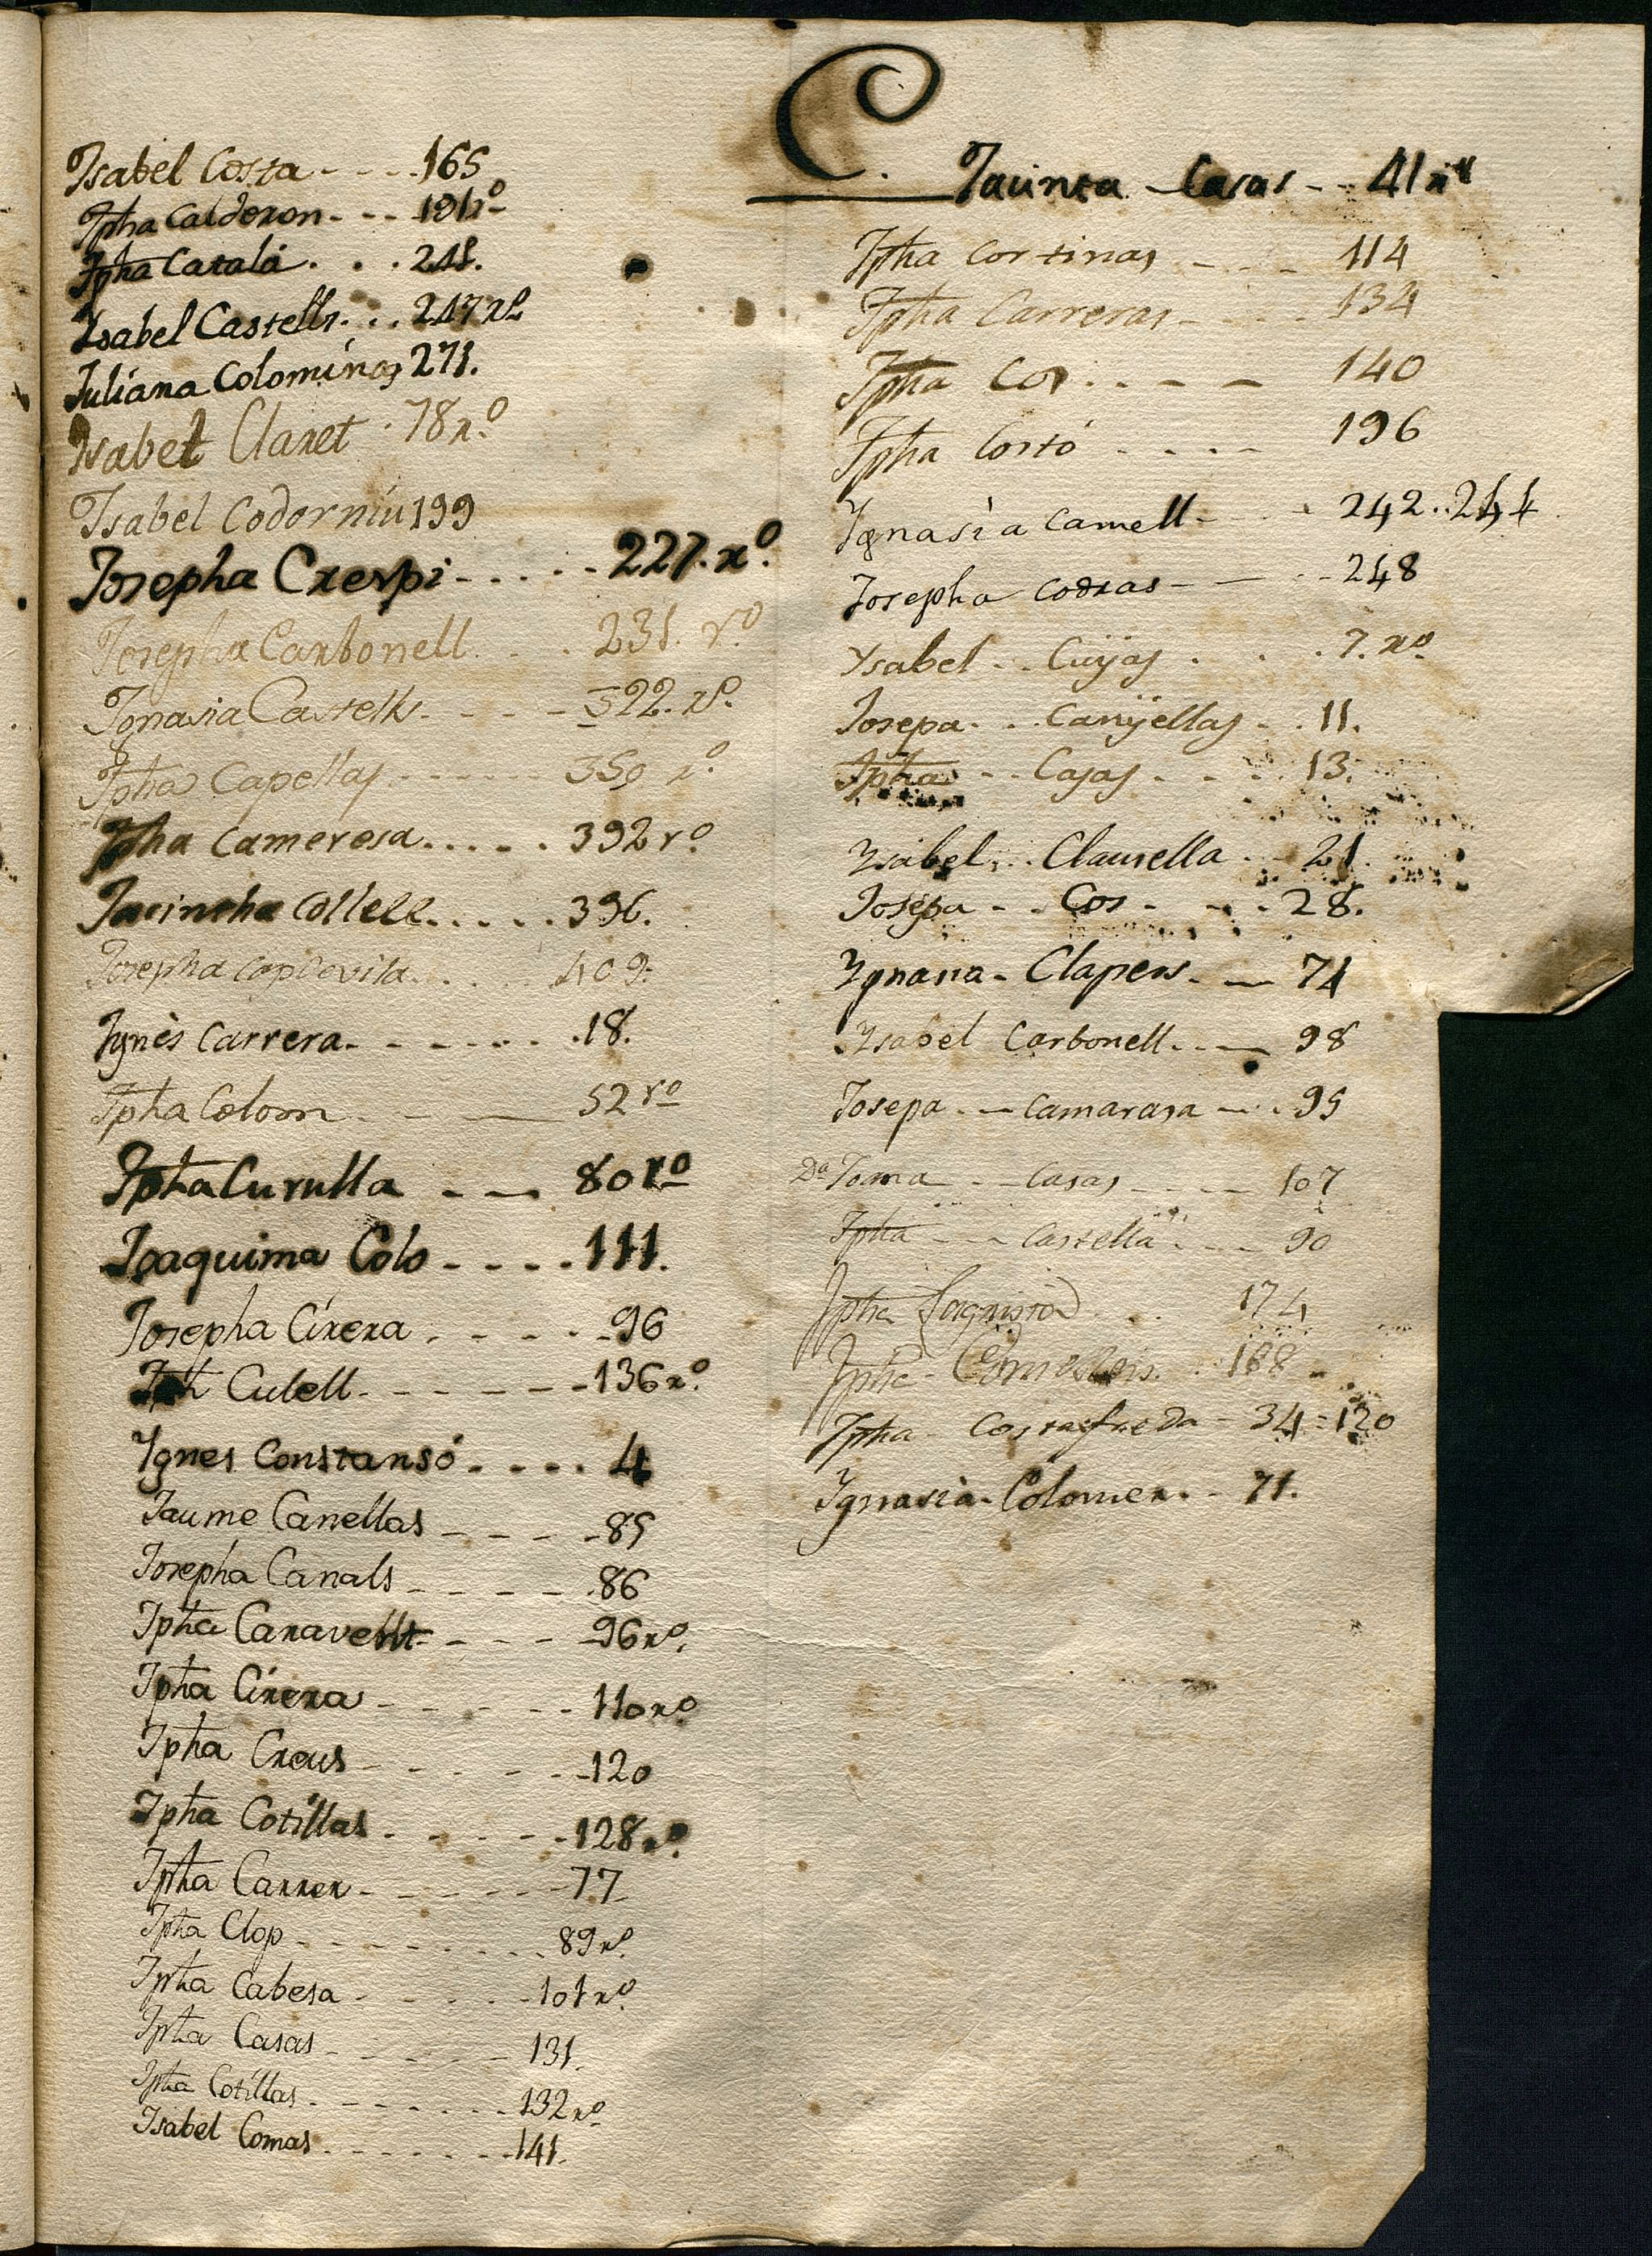 C.
Isabel Costa - - - - 165
Ipha Calderon - - - 191 rº
Ipha Catalá . . . 241.
Isabel Castells . . . 247 rº
Iuliana Colominas 271.
Isabet Claret . 78 rº
Isabel Codorniu 199
Iosepha Crespi - - - - - 227. rº
Iosepha Carbonell . . . 231. rº
Ignasia Castells - - - - 322. rº
Ipha Capellas - - - - - 350 rº
Ipha Cameresa . . . . . 392 rº
Iacintha Collell . . . . . 396.
Iosepha Capdevila . . . . 409.
Ignès Carrera - - - - - 18.
Ipha Colom - - - 52 rº
Ipha Curulla - - - 80 rº
Ioaquima Colo - - - - 111.
Iosepha Cirera . - - - - 96
Iph Cutell - - - - - - 136 rº
Ygnes Constansó - - - - 4
Iaume Canellas - - - - 85
Iosepha Canals - - - - 86
Ipha Caravent - - - - 96 rº
Ipha Cirera - - - - - 110 rº
Ipha Creus - - - - - 120
Ipha Cotillas - - - - - 128 rº
Ipha Carrer - - - - - 77
Ipha Clop - - - - - - 89 rº
Ipha Cabesa - - - - - 101 rº
Ipha Casas - - - - - 131.
Ipha Cotillas - - - - - 132 rº
Isabel Comas - - - - - 141.
Iacinta - Casas - - 41 rº
Ipha Cortinas - - - 114
Ipha Carreras - - - - 134
Ipha Cos . . - - - 140
Ipha Costó - - - - 196
Ignasia Camell - - - 242..244
Iosepha Codras - - - - 248
Ysabel . . Cuyas . . . 7. rº
Iosepa . . Canyellas - . 11.
Ipha - . . Casas . - . 13.
Ysabel . . . Claurella . - 21.
Iosepa - . Cos . - - . 28.
Ygnasia - Clapers . - 74
Ysabel Carbonell . . - 98
Iosepa . - Camarasa - . . 95
Dª Ioana - - Casas - - - 107
Ipha - - - Castella . - - 90
Ipha . . 174
Ipha - . 188
Ipha - Costafreda - 34 = 120
Ygnasia - Colomer . - 71.